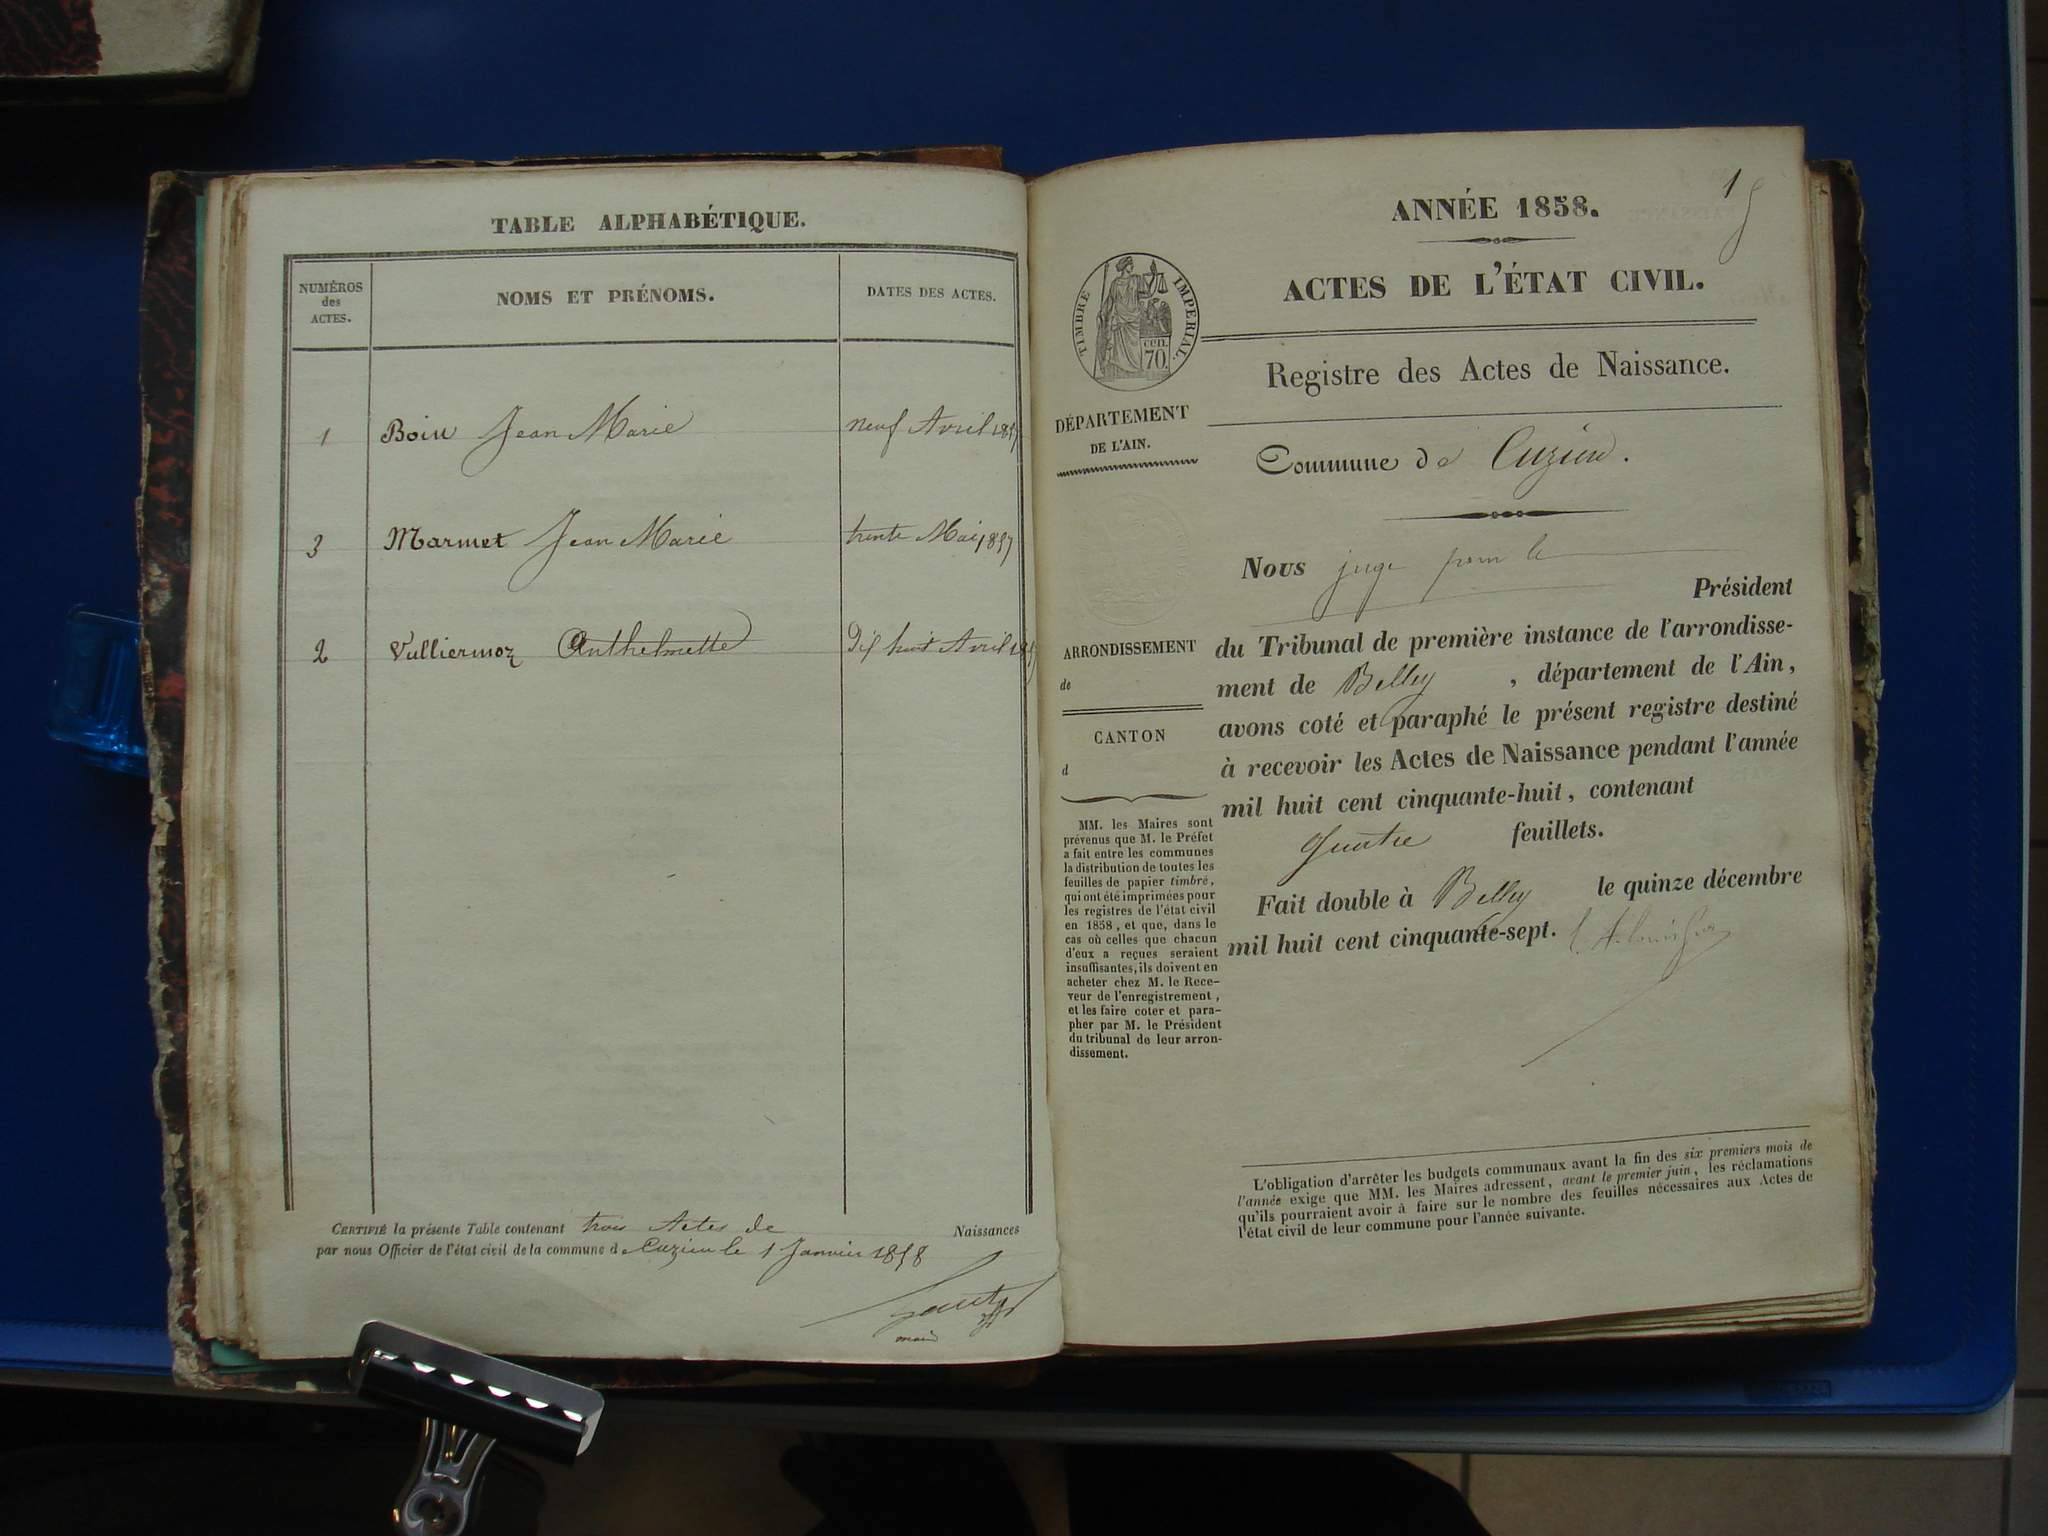 TABLE ALPHABÉTIQUE.
NUMÉROS
des
ACTES.
NOMS ET PRÉNOMS.
DATES DES ACTES.
1 Boin Jean Marie neuf Avril 1857
3 Marmet Jean Marie trente Mai 1857
2 Vulliermoz Anthelmette Dix huit Avril 1857
CERTIFIÉ la présente Table contenant trois Actes de Naissances
par nous Officier de l'état civil de la commune de Cuzieu le 1 Janvier 1858
maire
1
ANNÉE 1858.
ACTES DE L'ÉTAT CIVIL.
TIMBRE IMPERIAL.
cen.
70.
Registre des Actes de Naissance.
DÉPARTEMENT
DE L'AIN.
Commune de Cuzieu.
ARRONDISSEMENT
de
CANTON
d
MM. les Maires sont
prévenus que M. le Préfet
a fait entre les communes
la distribution de toutes les
feuilles de papier timbré,
qui ont été imprimées pour
les registres de l'état civil
en 1858, et que, dans le
cas où celles que chacun
d'eux a reçues seraient
insuffisantes, ils doivent en
acheter chez M. le Rece-
veur de l'enregistrement,
et les faire coter et para-
pher par M. le Président
du tribunal de leur arron-
dissement.
Nous juge pour le
Président
du Tribunal de première instance de l'arrondisse-
ment de Belley, département de l'Ain,
avons coté et paraphé le présent registre destiné
à recevoir les Actes de Naissance pendant l'année
mil huit cent cinquante-huit, contenant
quatre feuillets.
Fait double à Belley le quinze décembre
mil huit cent cinquante-sept.
L'obligation d'arrêter les budgets communaux avant la fin des six premiers mois de
l'année exige que MM. les Maires adressent, avant le premier juin, les réclamations
qu'ils pourraient avoir à faire sur le nombre des feuilles nécessaires aux Actes de
l'état civil de leur commune pour l'année suivante.